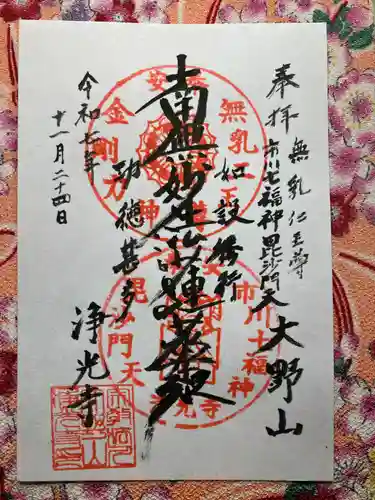 奉拝
無乳仁王尊
市川七福神毘沙門天
大野山
如説修行
南無妙法蓮華経
功徳甚多
浄光寺
令和七年
十一月二十四日
無乳
金剛力
神
市川七福神
毘沙門天